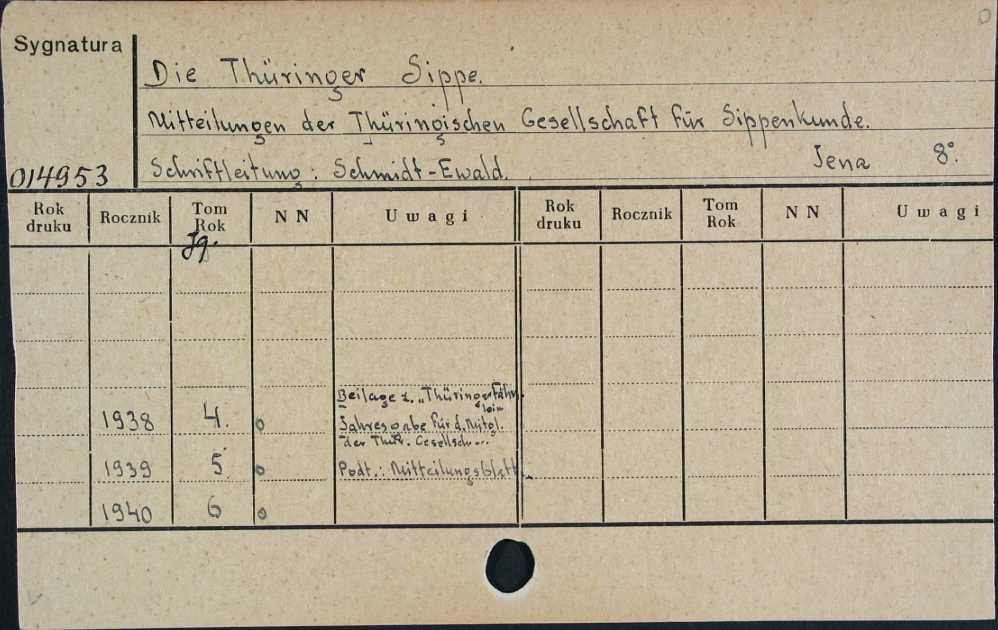 Sygnatura
Die Thüringer Sippe.
Mitteilungen der Thüringischen Gesellschaft für Sippenkunde.
Jena 8°.
014953 Schriftleitung: Schmidt-Ewald.
Rok druku Rocznik Tom Rok N N Uwagi Rok druku Rocznik Tom Rok N N Uwagi
Jg.
Beilage z. „Thüringer Fähn-
lein
1938 4. o Jahresgabe für d. Mitgl.
der Thür. Gesellsch...
1939 5. o Podt.: Mitteilungsblatt...
1940 6 o